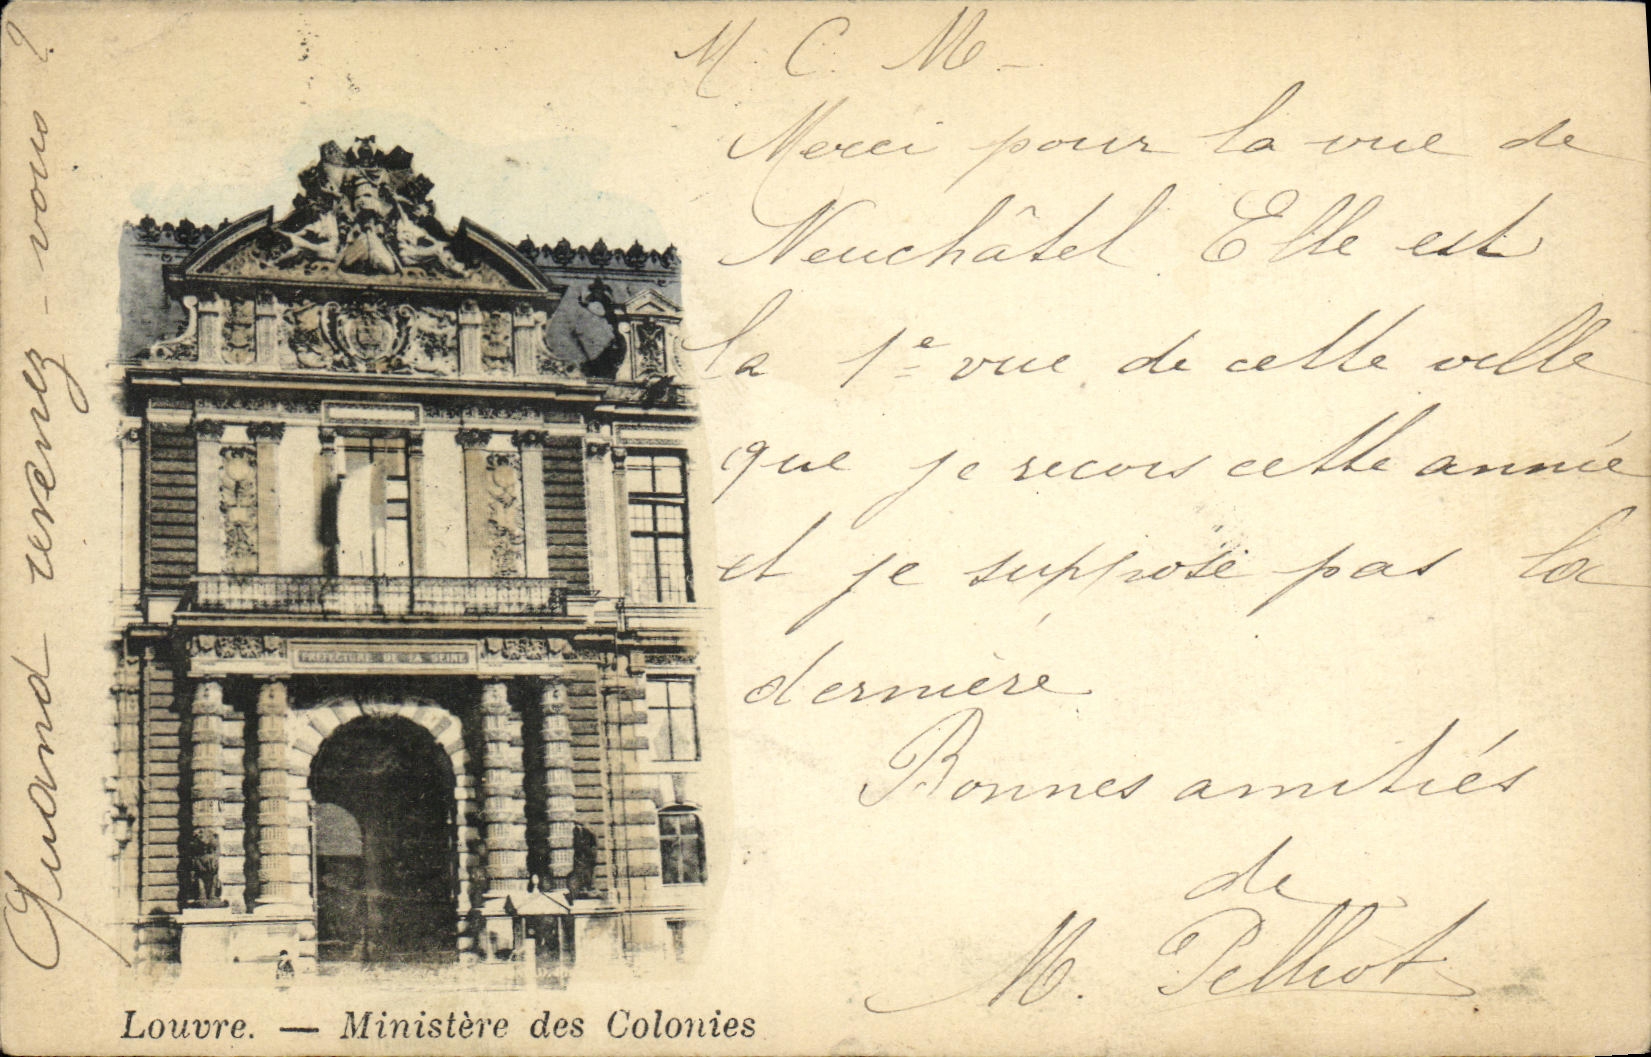 M. C. M-
Merci pour la vue de
Neuchâtel. Elle est
la 1e vue de cette ville
que je recois cette année
et je suppose pas la
dernière
Bonnes amitiés
de
M. Pelliot
Quand venez-vous ?
PREFECTURE DE LA SEINE
Louvre. — Ministère des Colonies